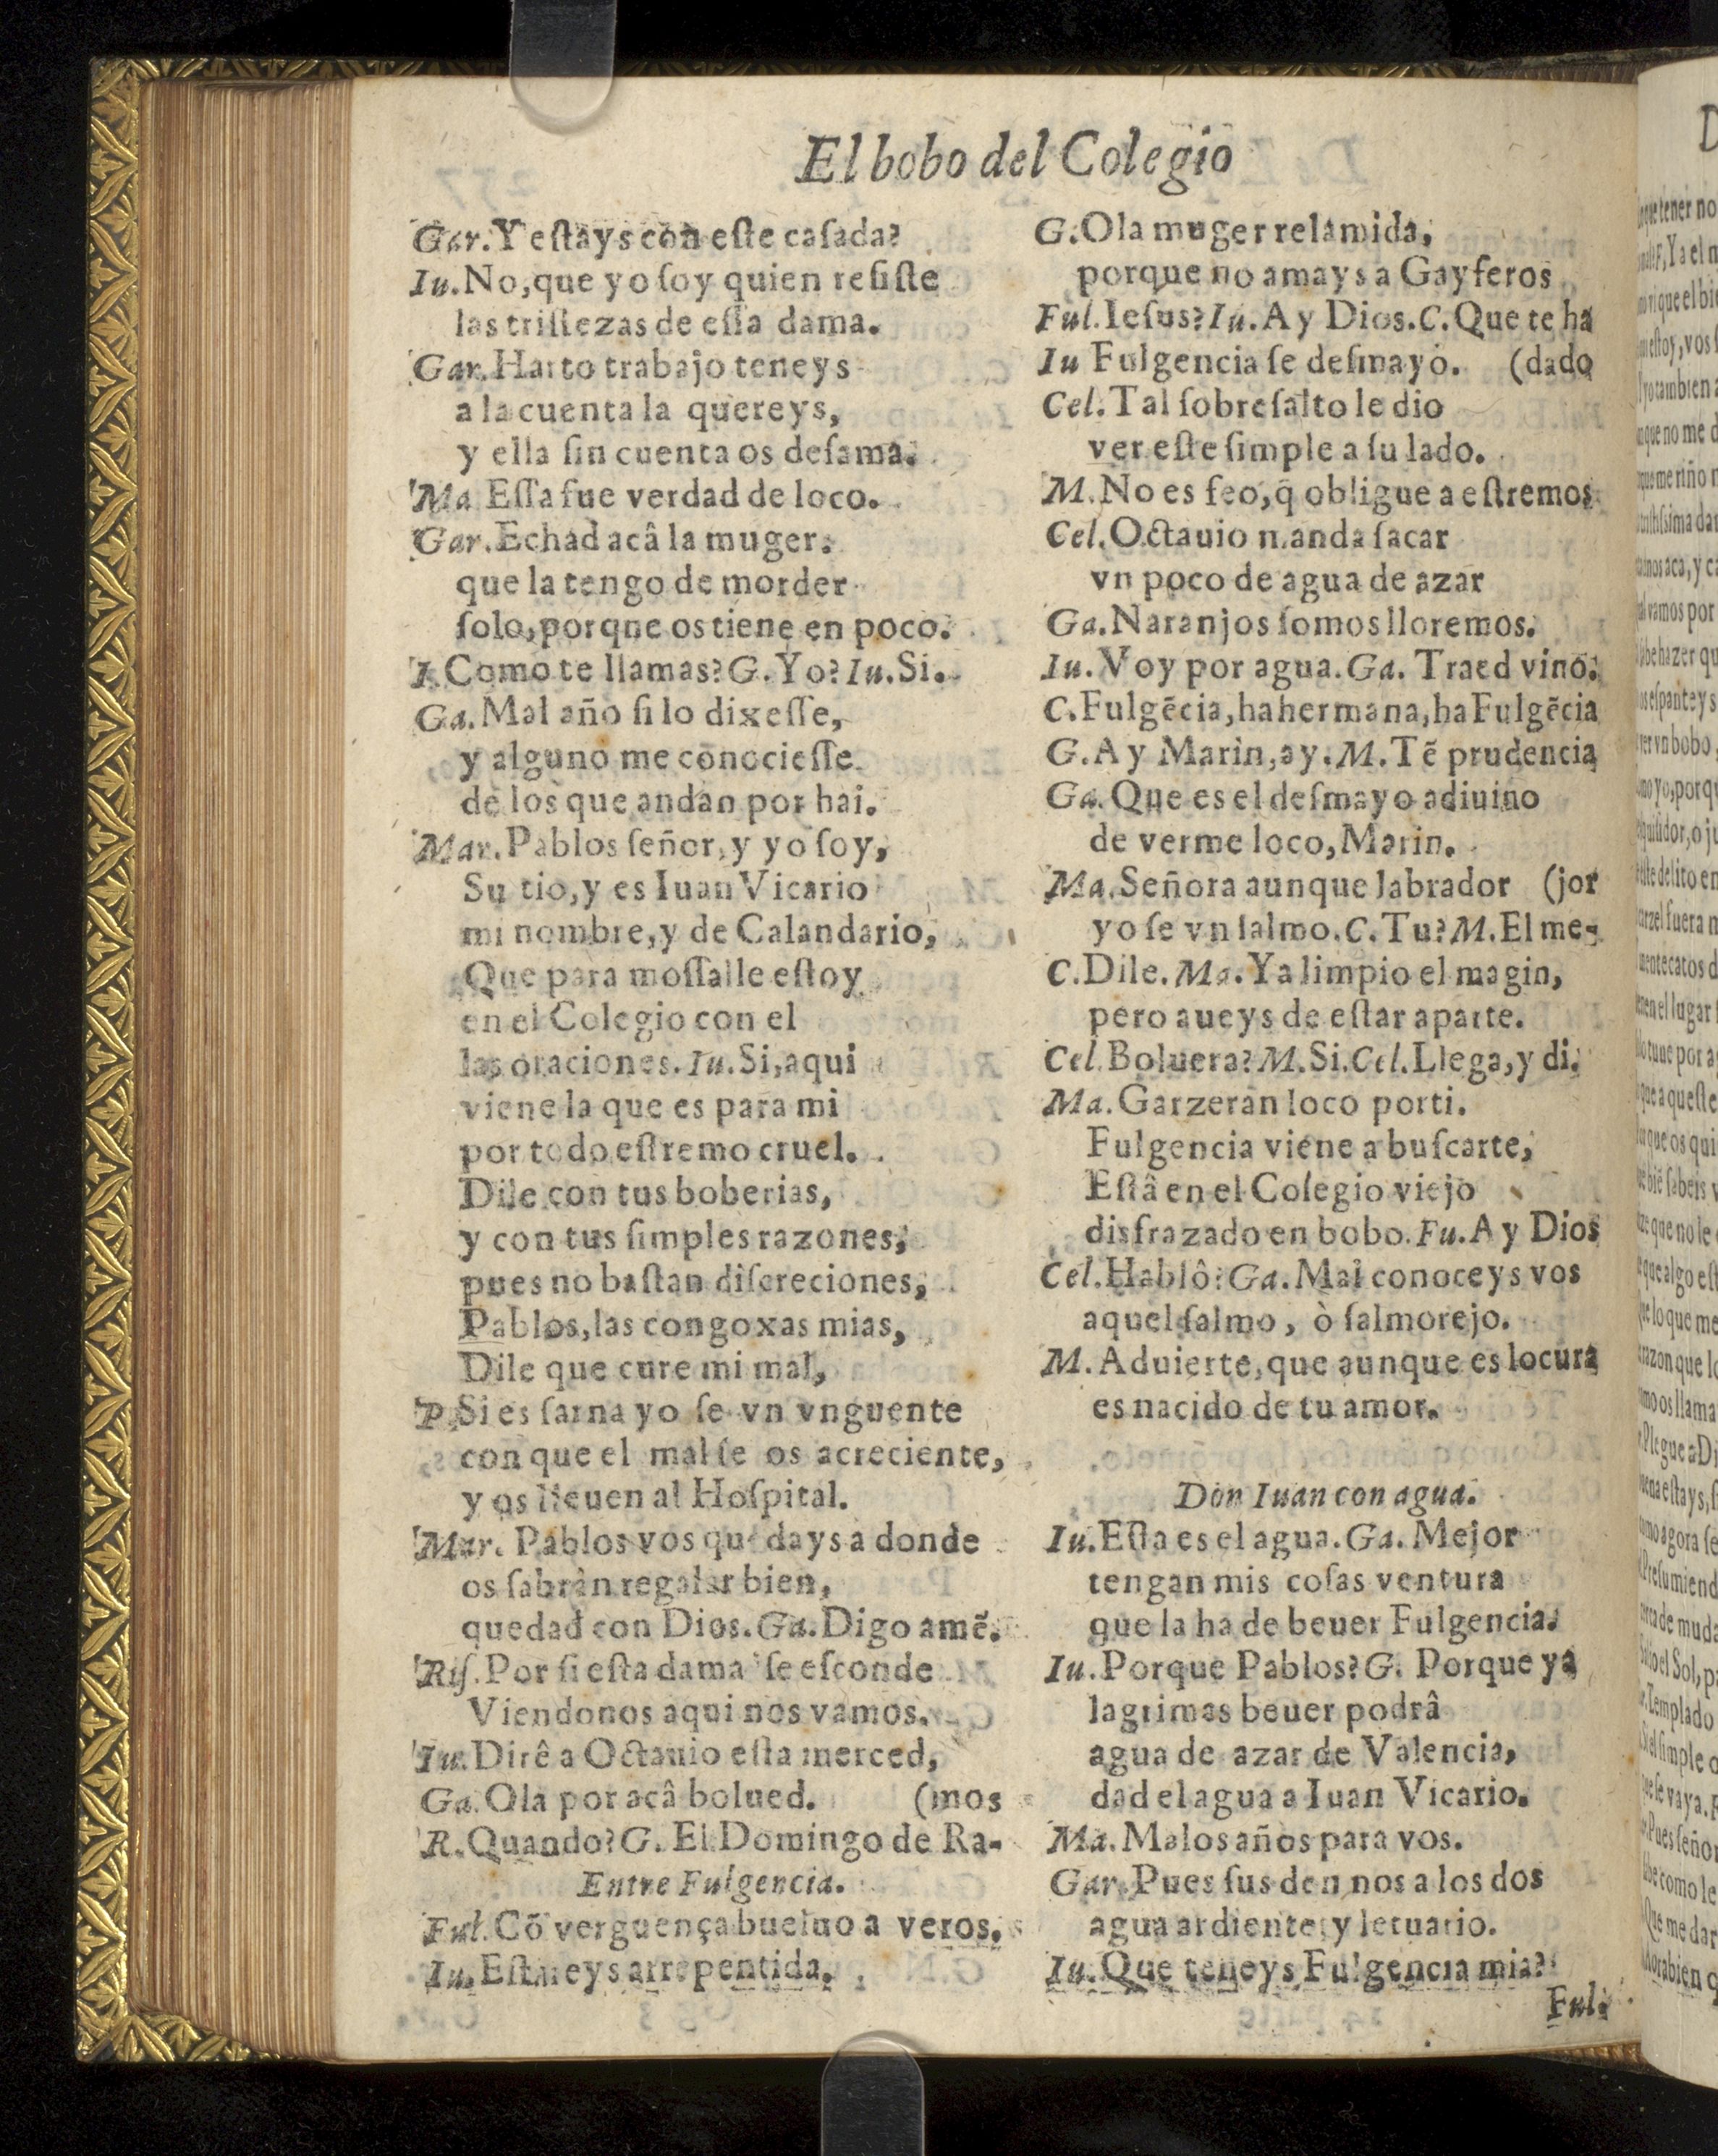 El bobo del Colegio
Gar. Y eſtays con eſte caſada?
Iu. No, que yo ſoy quien reſiſte
las triſtezas de eſſa dama.
Gar. Harto trabajo teneys
a la cuenta la quereys,
y ella ſin cuenta os deſama.
Ma. Eſſa fue verdad de loco.
Gar. Echad acâ la muger.
que la tengo de morder
ſolo, porqne os tiene en poco.
I. Como te llamas? G. Yo? Iu. Si.
Ga. Mal año ſi lo dixeſſe,
y alguno me conocieſſe
de los que andan por hai.
Mar. Pablos ſeñor, y yo ſoy,
Su tio, y es Iuan Vicario
mi nombre, y de Calandario,
Que para moſſalle eſtoy
en el Colegio con el
las oraciones. Iu. Si, aqui
viene la que es para mi
por todo eſtremo cruel.
Dile con tus boberias,
y con tus ſimples razones,
pues no baſtan diſcreciones,
Pablos, las congoxas mias,
Dile que cure mi mal,
P. Si es ſarna yo ſe vn vnguente
con que el mal ſe os acreciente,
y os lleuen al Hoſpital.
Mar. Pablos vos quedays a donde
os ſabràn regalar bien,
quedad con Dios. Ga. Digo amẽ.
Riſ. Por ſi eſta dama ſe eſconde
Viendonos aqui nos vamos.
Iu. Dirê a Octauio eſta merced,
Ga. Ola por acâ bolued. (mos
R. Quando? G. El Domingo de Ra-
Entre Fulgencia.
Ful. Cõ verguença bueluo a veros.
Iu. Eſtareys arrepentida.
G. Ola muger relamida,
porque no amays a Gayferos
Ful. Ieſus? Iu. Ay Dios. C. Que te ha
Iu Fulgencia ſe deſmayò. (dado
Cel. Tal ſobreſalto le dio
ver eſte ſimple a ſu lado.
M. No es feo, q̃ obligue a eſtremos
Cel. Octauio manda ſacar
vn poco de agua de azar
Ga. Naranjos ſomos lloremos.
Iu. Voy por agua. Ga. Traed vino.
C. Fulgẽcia, ha hermana, ha Fulgẽcia
G. Ay Marin, ay. M. Tẽ prudencia
Ga. Que es el deſmayo adiuino
de verme loco, Marin.
Ma. Señora aunque labrador (jor
yo ſe vn ſalmo. C. Tu? M. El me-
C. Dile. Ma. Ya limpio el magin,
pero aueys de eſtar aparte.
Cel. Boluera? M. Si. Cel. Llega, y di.
Ma. Garzeràn loco por ti.
Fulgencia viene a buſcarte,
Eſtâ en el Colegio viejo
disfrazado en bobo. Fu. Ay Dios
Cel. Hablô? Ga. Mal conoceys vos
aquel ſalmo, ò ſalmorejo.
M. Aduierte, que aunque es locura
es nacido de tu amor.
Don Iuan con agua.
Iu. Eſta es el agua. Ga. Mejor
tengan mis coſas ventura
que la ha de beuer Fulgencia.
Iu. Porque Pablos? G. Porque ya
lagrimas beuer podrâ
agua de azar de Valencia,
dad el agua a Iuan Vicario.
Ma. Malos años para vos.
Gar. Pues ſus den nos a los dos
agua ardiente, y letuario.
Iu. Que teneys Fulgencia mia?
Ful.